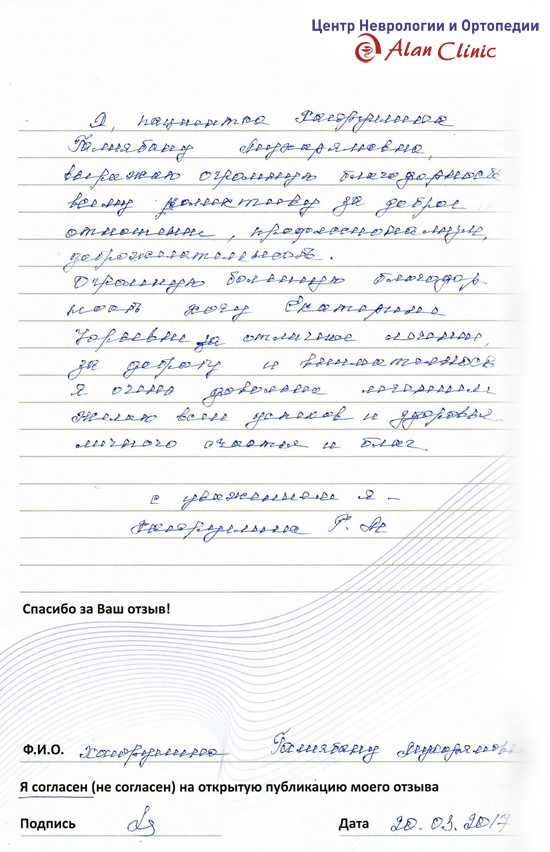 Центр Неврологии и Ортопедии
Alan Clinic
Я, пациентка Хайруллина
Гульбану
выражаю огромную благодарность
всему коллективу за доброе
отношение, профессионализм,
доброжелательность.
Огромную большую благодар
ность хочу Екатерине
Юрьевне за отличное лечение,
за доброту и внимательность
Я очень довольна лечением
Желаю всем успехов и здоровья
личного счастья и благ
с уважением я -
Г. М
Спасибо за Ваш отзыв!
Ф.И.О.
Я согласен (не согласен) на открытую публикацию моего отзыва
Подпись Дата 20.03.2017